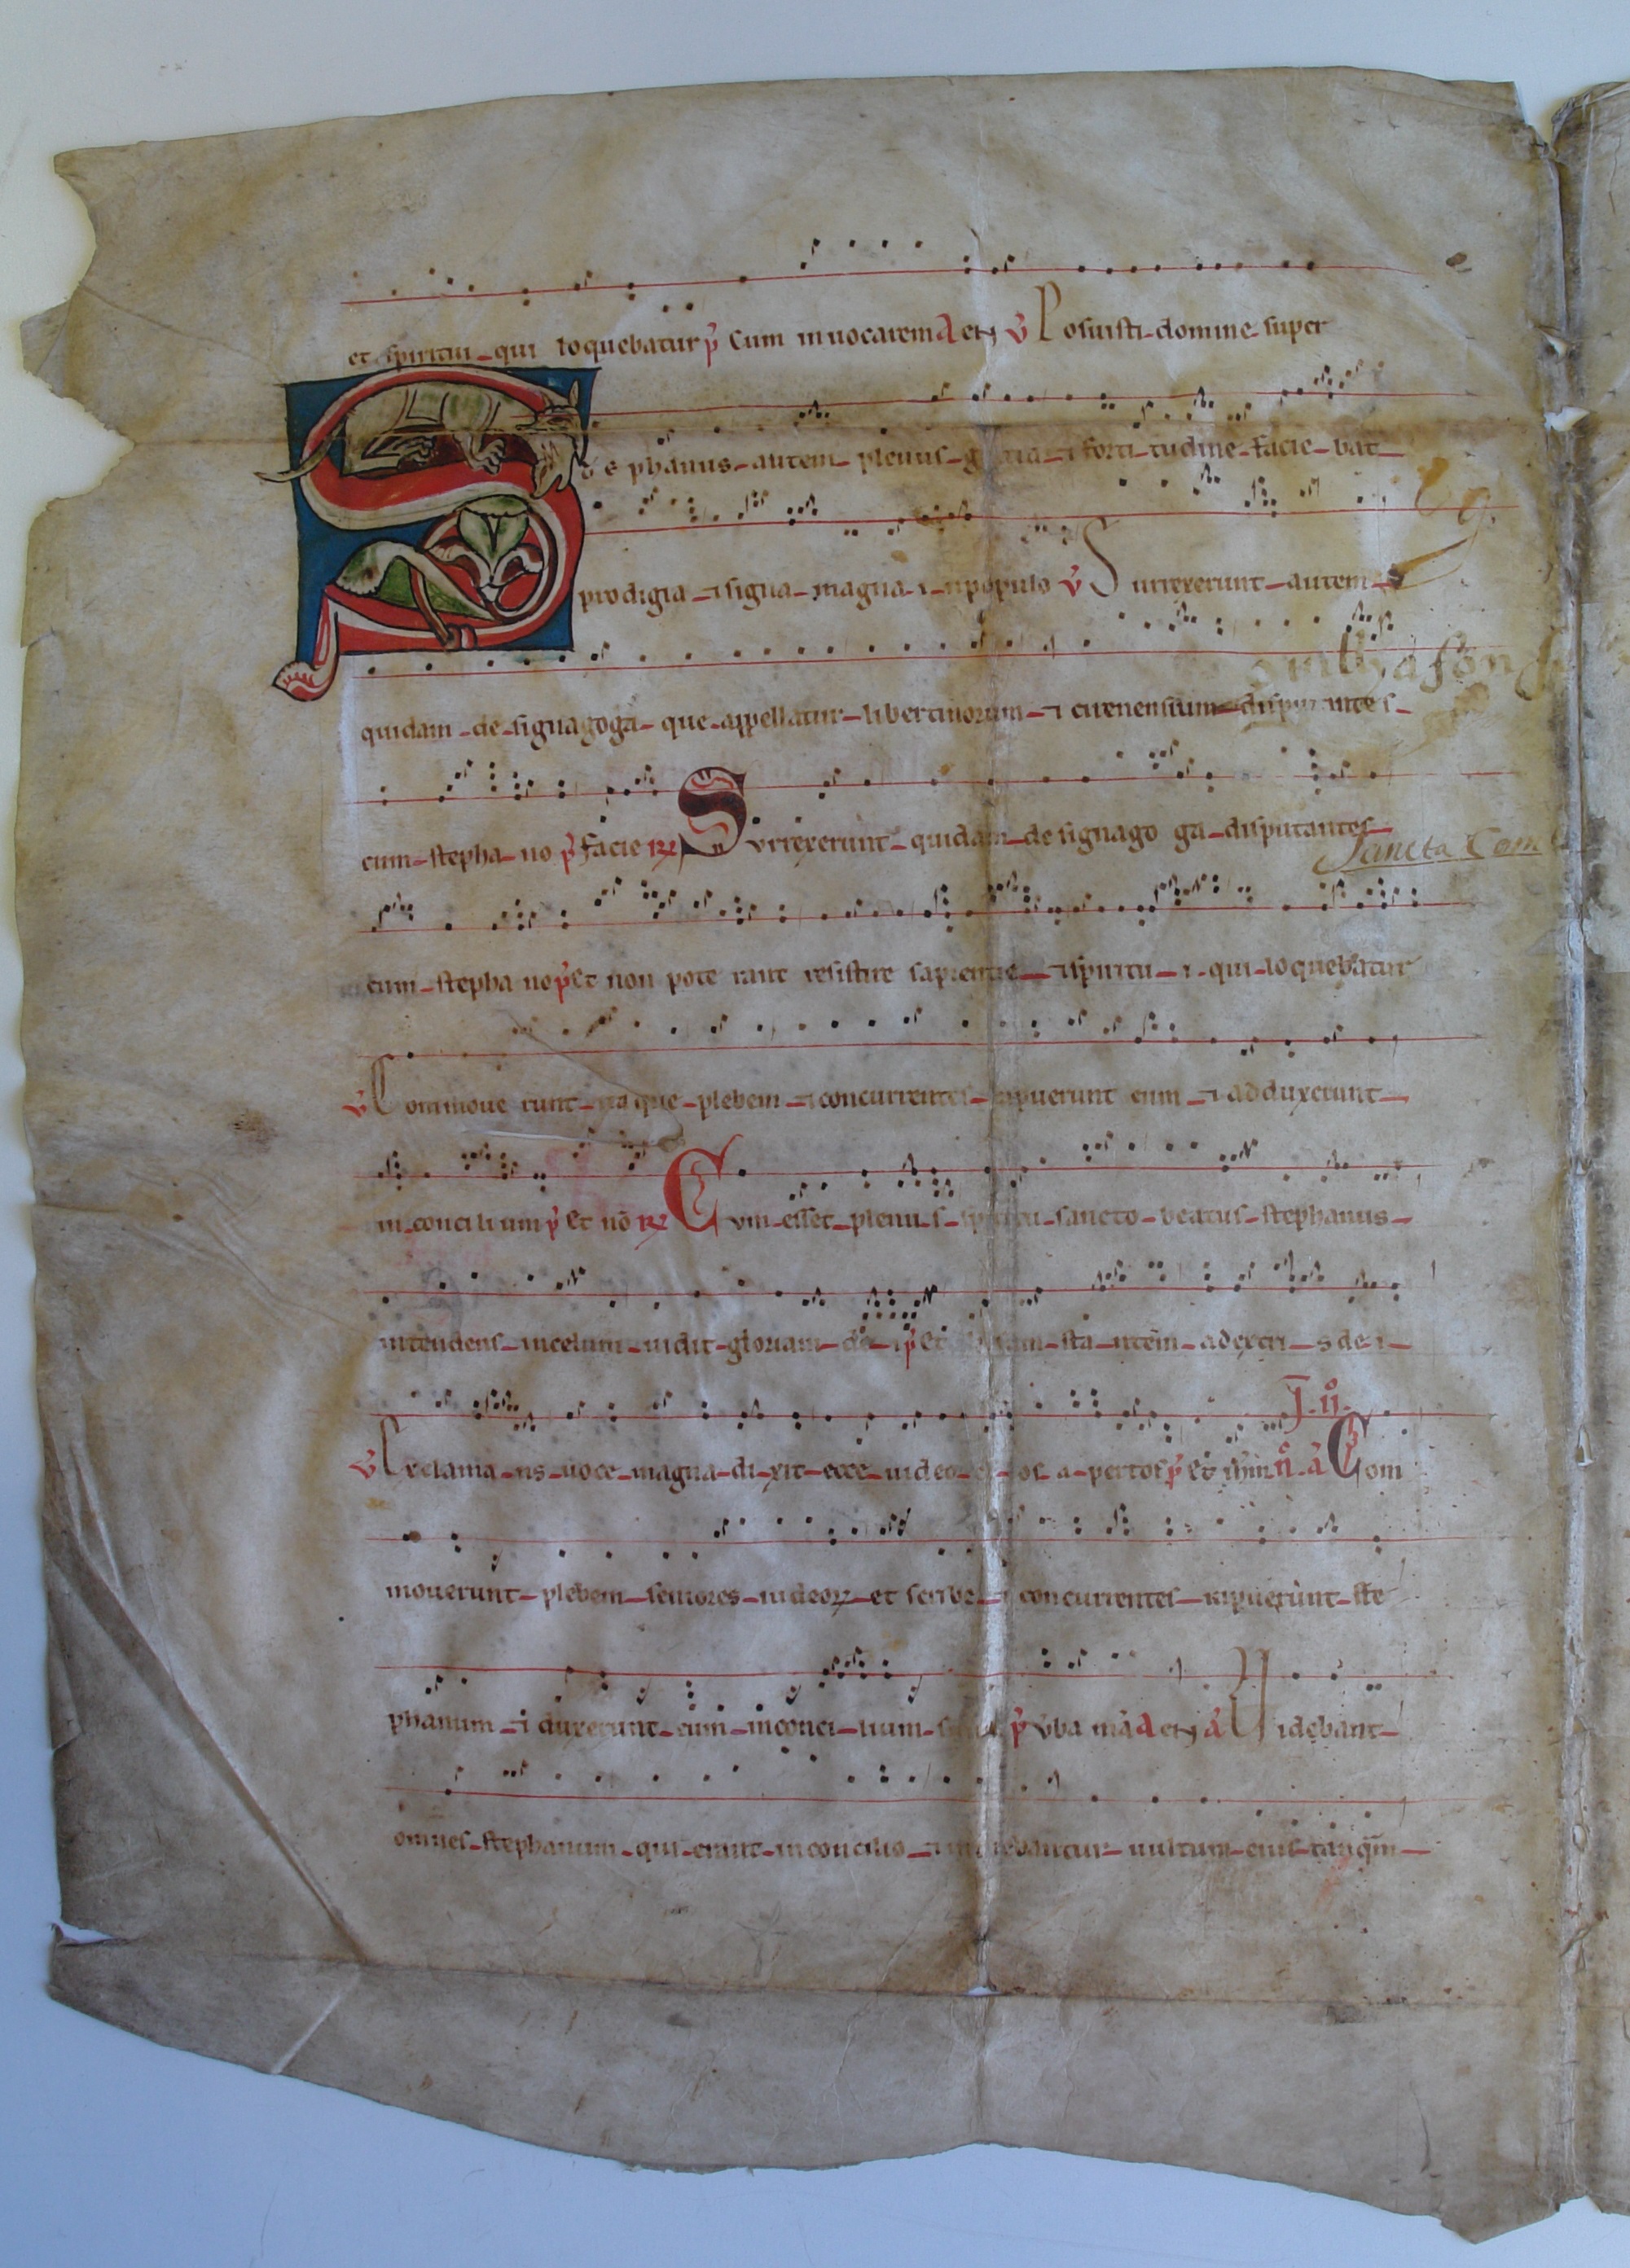 et spiritui qui loquebatur p̄ Cum inuocarem a eꝶ v̄ Posuisti domine super
Stephanus autem plenus gratia ⁊ fortitudine faciebat
prodigia ⁊ signa magna in populo v̄ Surrexerunt autem
quidam de signagoga que appellatur libertinorum ⁊ cirenensium disputantes
cum stephano p̄ facie ꝶ Surrexerunt quidam de signagoga disputantes
Sancta Com
cum stephano p̄ Et non poterant resistere sapientie ⁊ spiritui qui loquebatur
v̄ Commouerunt itaque plebem ⁊ concurrentes rapuerunt eum ⁊ adduxerunt
in concilium p̄ Et nō ꝶ Cum esset plenus spiritu sancto beatus stephanus
intendens in celum uidit gloriam dei p̄ Et stantem ad extris dei
I. n̊.
v̄ Exclamans uoce magna dixit ecce uideo celos apertos p̄ Et n̊ a Com
mouerunt plebem seniores iudeoꝝ et scribe ⁊ concurrentes rapuerunt ste
phanum ⁊ duxerunt eum in concilium p̄ Vba mā a eꝶ a Videbant
omnes stephanum qui erant in concilio ⁊ intuebantur uultum eius tanq̄m